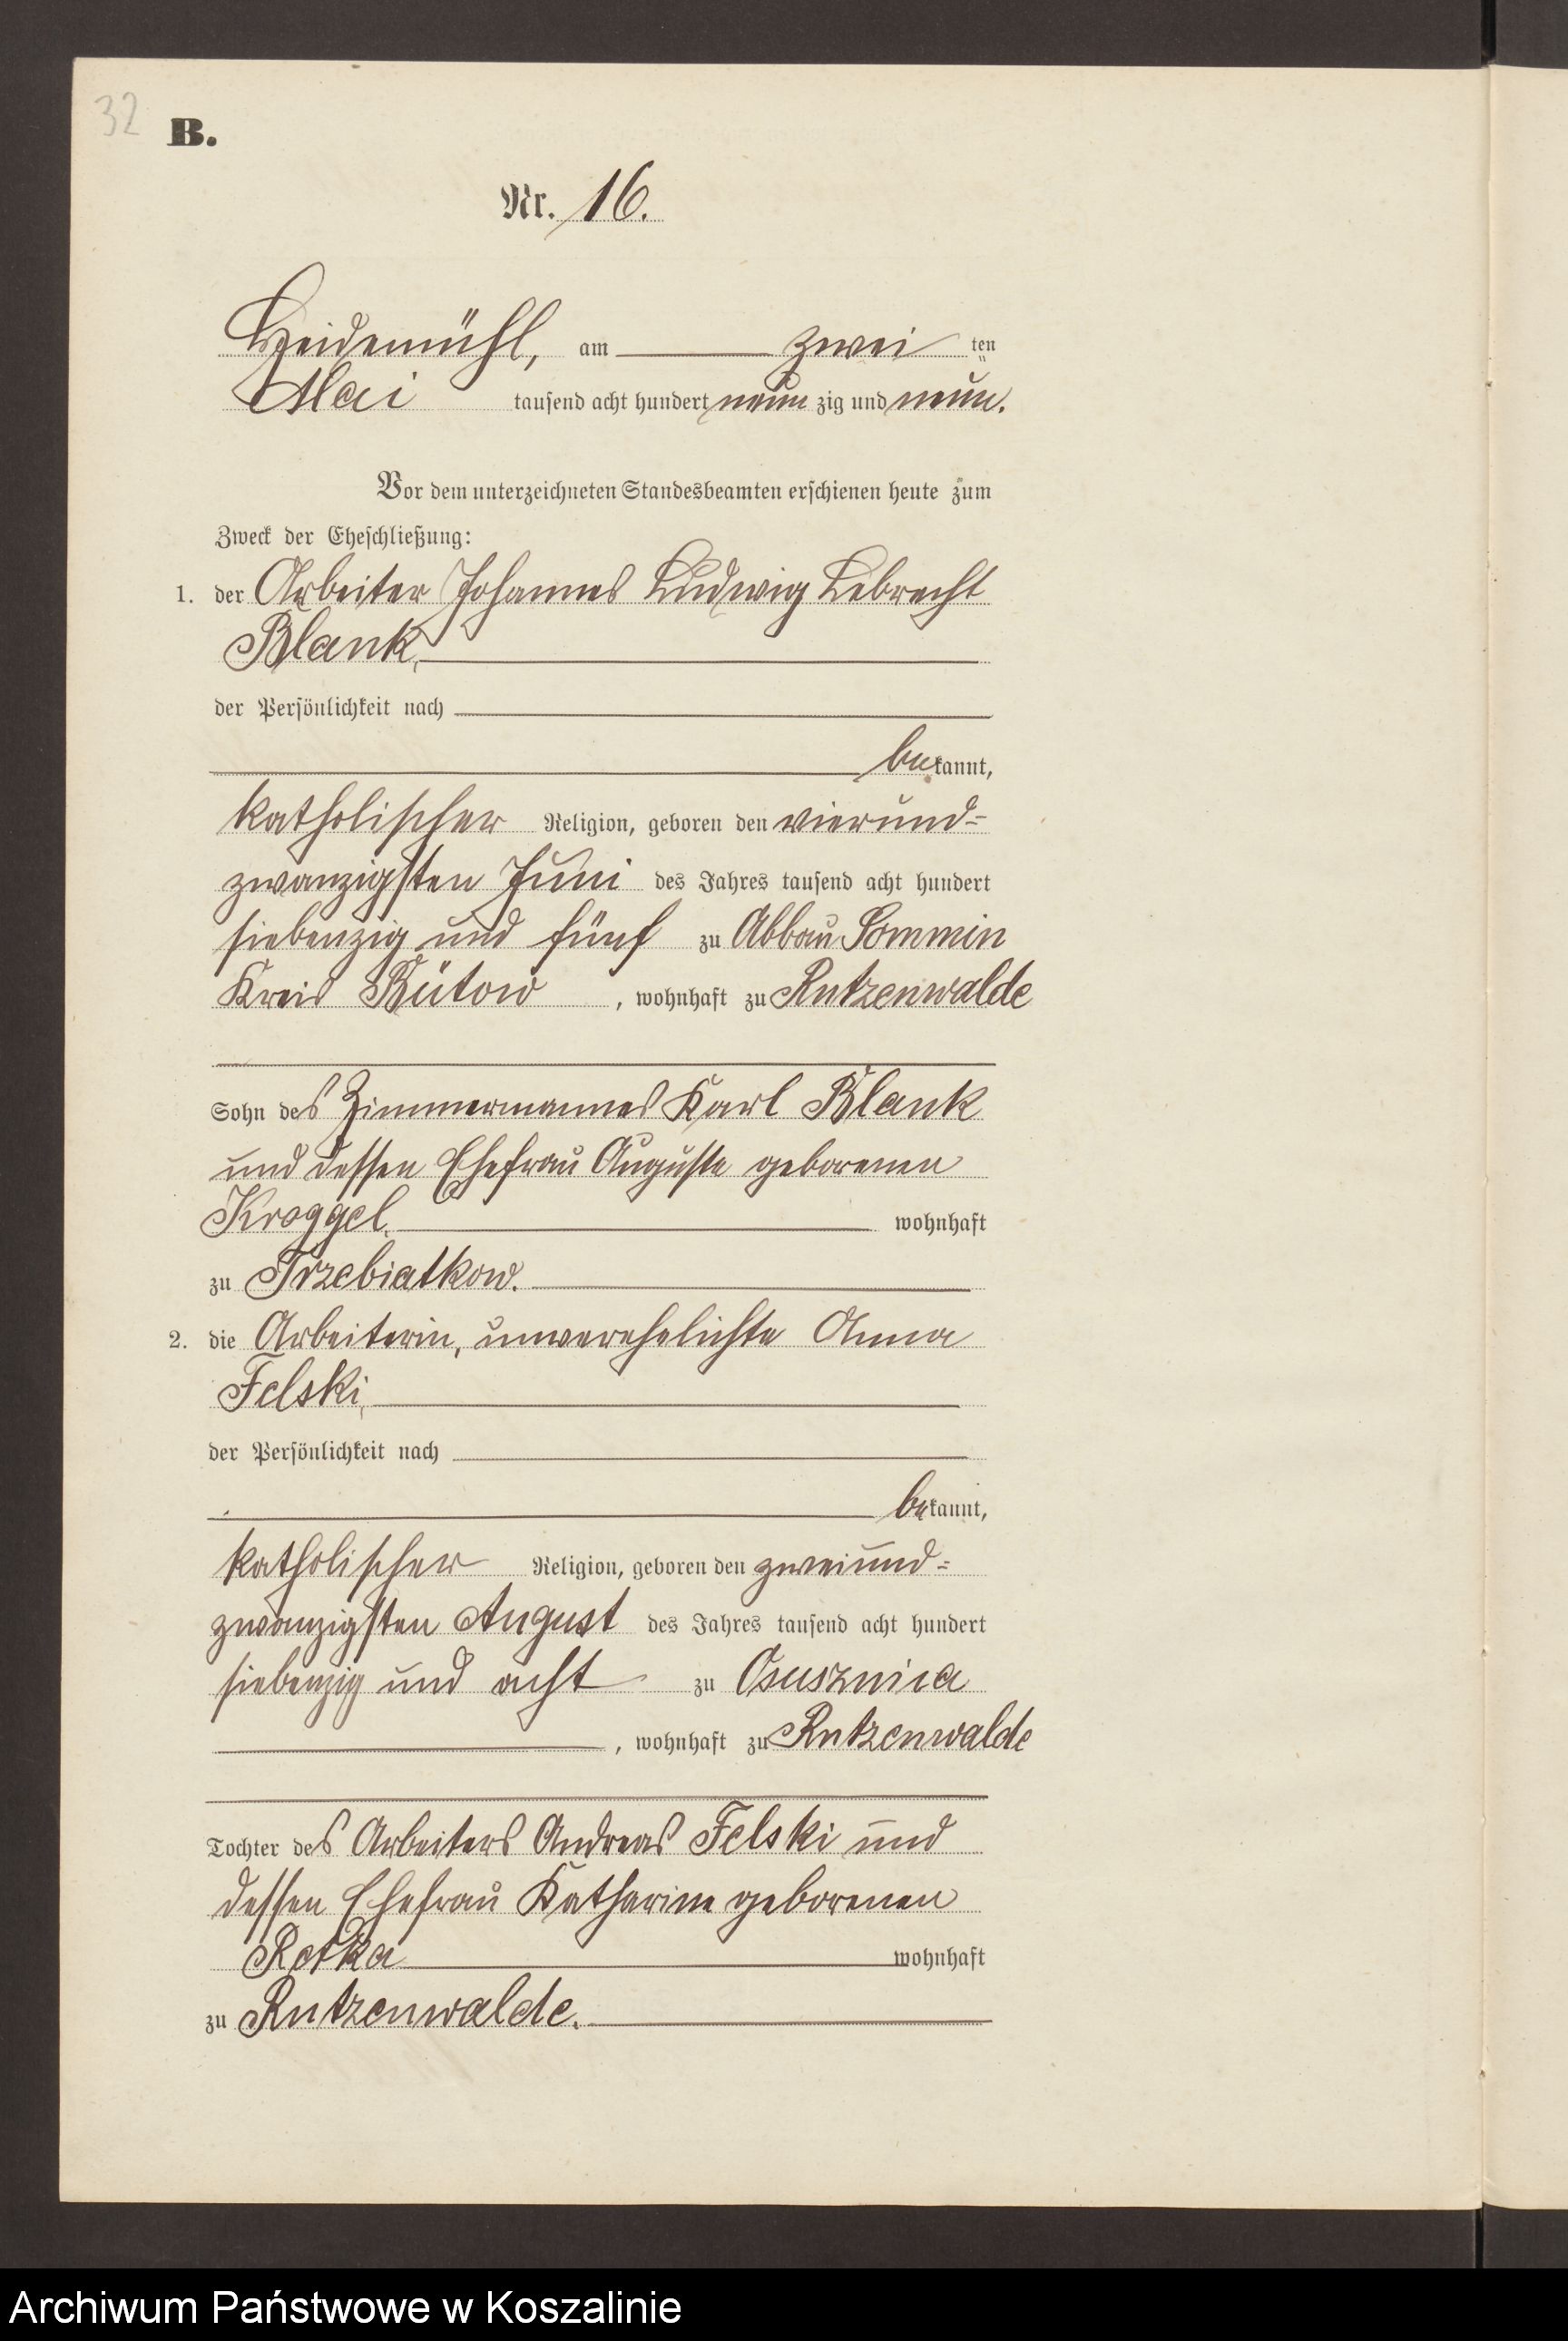 32
B.
Nr. 16.
Heidemühl, am zwei ten
Mai tausend acht hundert neun zig und neun.
Vor dem unterzeichneten Standesbeamten erschienen heute zum
Zweck der Eheschließung:
1. der Arbeiter Johannes Ludwig Lebrecht
Blank,
der Persönlichkeit nach
bekannt,
katholischer Religion, geboren den vierund-
zwanzigsten Juni des Jahres tausend acht hundert
siebenzig und fünf zu Abbau Sommin
Kreis Bütow, wohnhaft zu Rutzenwalde
Sohn des Zimmermannes Karl Blank
und dessen Ehefrau Auguste geborenen
Kroggel, wohnhaft
zu Trzebiatkow.
2. die Arbeiterin, unverehelichte Anna
Felski,
der Persönlichkeit nach
bekannt,
katholischer Religion, geboren den zweiund-
zwanzigsten August des Jahres tausend acht hundert
siebenzig und acht zu Osusznica
, wohnhaft zu Rutzenwalde
Tochter des Arbeiters Andreas Felski und
dessen Ehefrau Katharine geborenen
wohnhaft
zu Rutzenwalde.
Archiwum Państwowe w Koszalinie